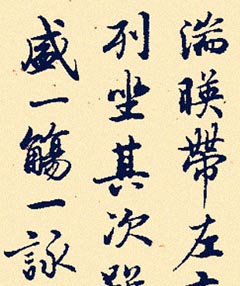 湍暎帶左右
列坐其次雖
盛一觴一詠